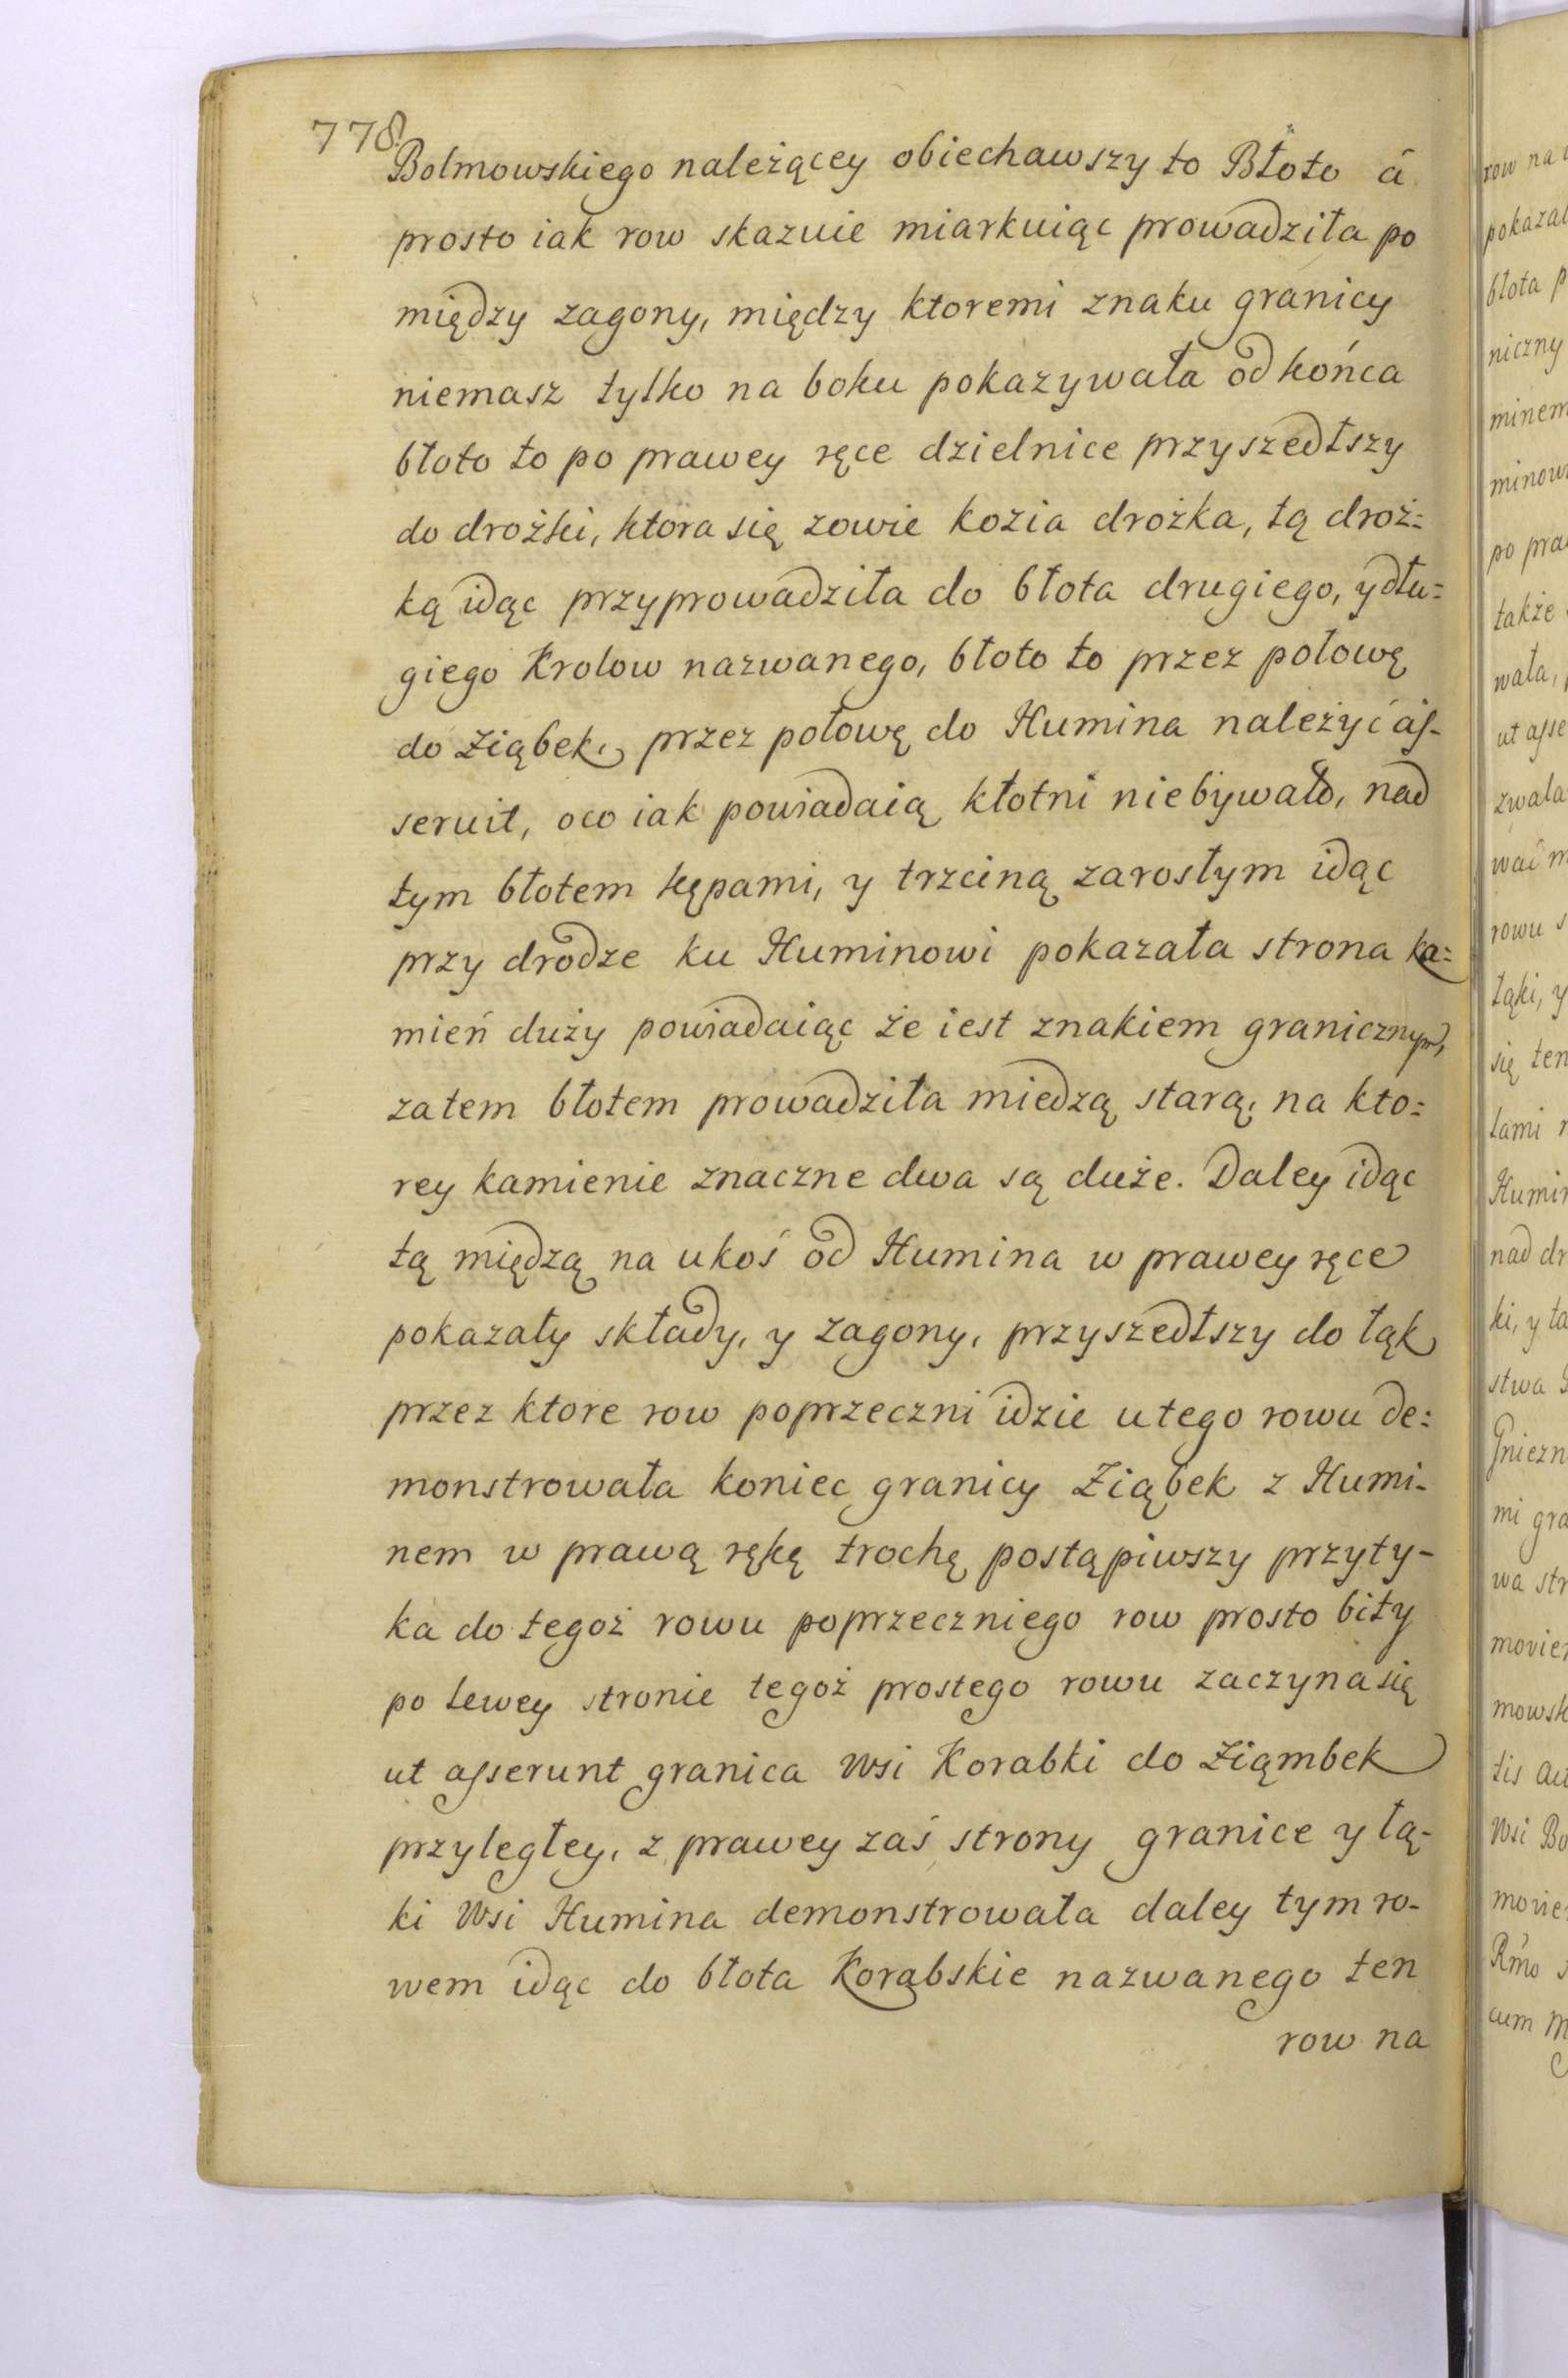 778.
Bolmowskiego należącey obiechawszy to Błoto á
prosto iak row skazuie miarkuiąc prowadziła po
między zagony, między ktoremi znaku granicy
niemasz tylko na boku pokazywała od końca
błoto to po prawey ręce dzielnice przyszedłszy
do drożki, ktora się zowie kozia drożka, tą droż:
ką idąc przyprowadziła do błota drugiego, y dłu:
giego Krolow nazwanego, błoto to przez połowę
do Ziąbek, przez połowę do Humina należyć as-
seruit, oco iak powiadaią kłotni niebywało, nad
tym błotem kępami, y trzciną zarosłym idąc
przy drodze ku Huminowi pokazała strona ka:
mień duży powiadaiąc że iest znakiem granicznym,
zatem błotem prowadziła miedzą starą, na kto:
rey kamienie znaczne dwa są duże. Daley idąc
tą międzą na ukoś od Humina w prawey ręce
pokazały składy, y zagony, przyszedłszy do łąk
przez ktore row poprzeczni idzie utego rowu de:
monstrowała koniec granicy Ziąbek z Humi-
nem w prawą rękę trochę postąpiwszy przyty-
ka do tegoż rowu poprzeczniego row prosto bity
po lewey stronie tegoż prostego rowu zaczyna się
ut asserunt granica Wsi Korabki do Ziąmbek
przyległey, z prawey zaś strony granice y łą-
ki Wsi Humina demonstrowała daley tym ro-
wem idąc do błota Korabskie nazwanego ten
row na
row na
pokazal
błota p
niczny
minem
minow
po pra
także
wała,
ut asse
zwala
wać m
rowu s
łąki, y
się ten
łami
Humin
nad dr
ki, y ta
stwa
Gniezn
mi gra
wa str
movie
mowsk
tis au
Wsi Bo
movie
Rmo
cum M